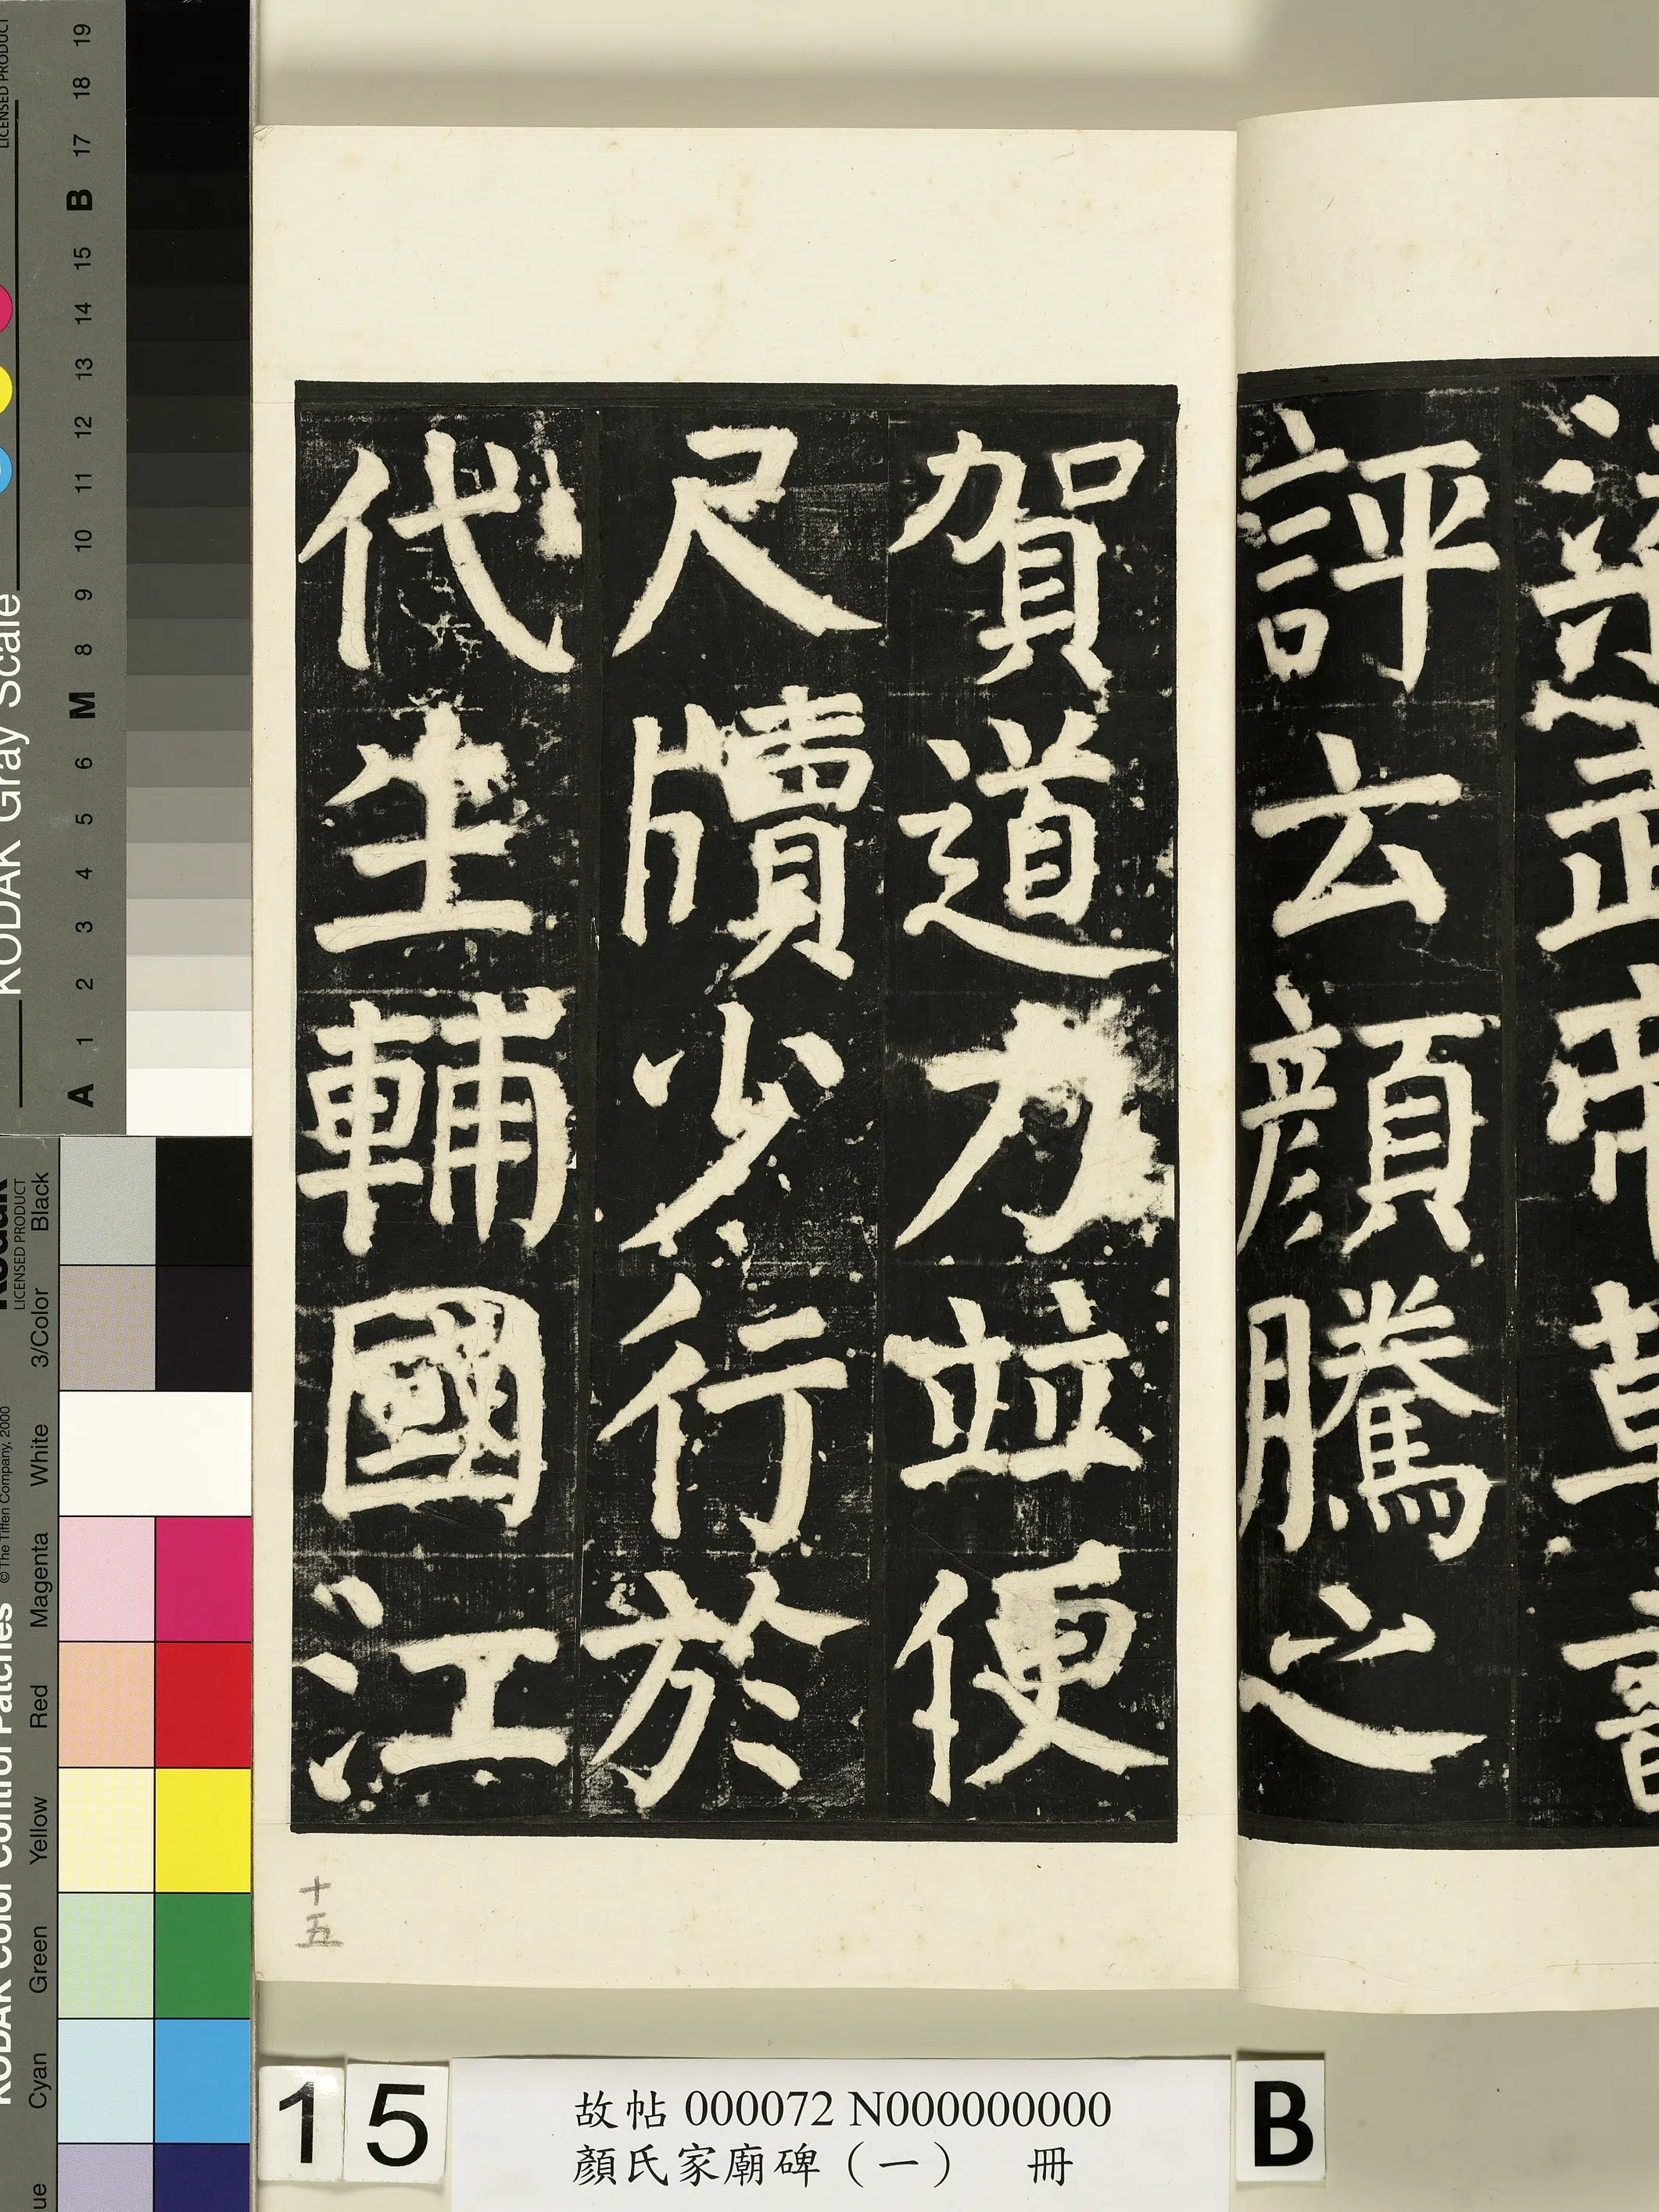 評云顏騰之
賀道力並便
尺牘少行於
代生輔國江
十五
15
故帖 000072 N000000000
顏氏家廟碑（一） 冊
B
KODAK Gray Scale
LICENSED PRODUCT
A 1 2 3 4 5 6 M 8 9 10 11 12 13 14 15 B 17 18 19
KODAK Color Control Patches
© The Tiffen Company, 2000
Kodak
LICENSED PRODUCT
Cyan Green Yellow Red Magenta White 3/Color Black